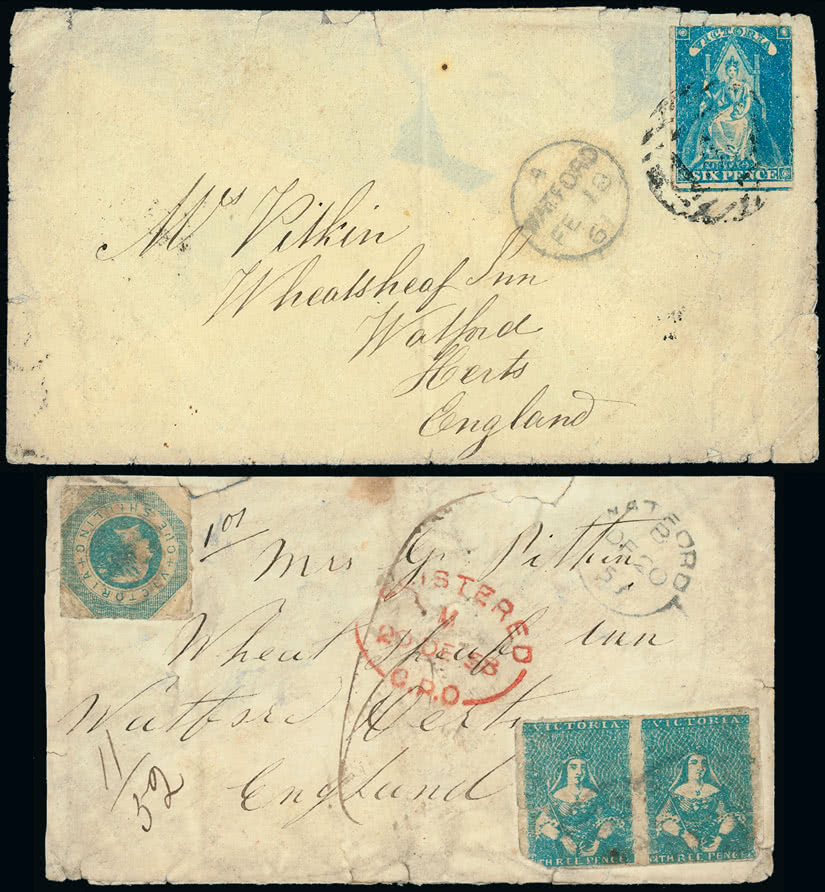 VICTORIA
SIX PENCE
A
WATFORD
FE 18
Mrs Pitkin
Wheatsheaf Inn
Watford
Herts
England
ONE SHILLING + VICTORIA +
WATFORD
B
DE 20
Mrs G. Pitkin
REGISTERED
M
20 DE 58
G.P.O.
Wheat Sheaf Inn
Watford Herts
11/52
England
VICTORIA
THREE PENCE
VICTORIA
THREE PENCE